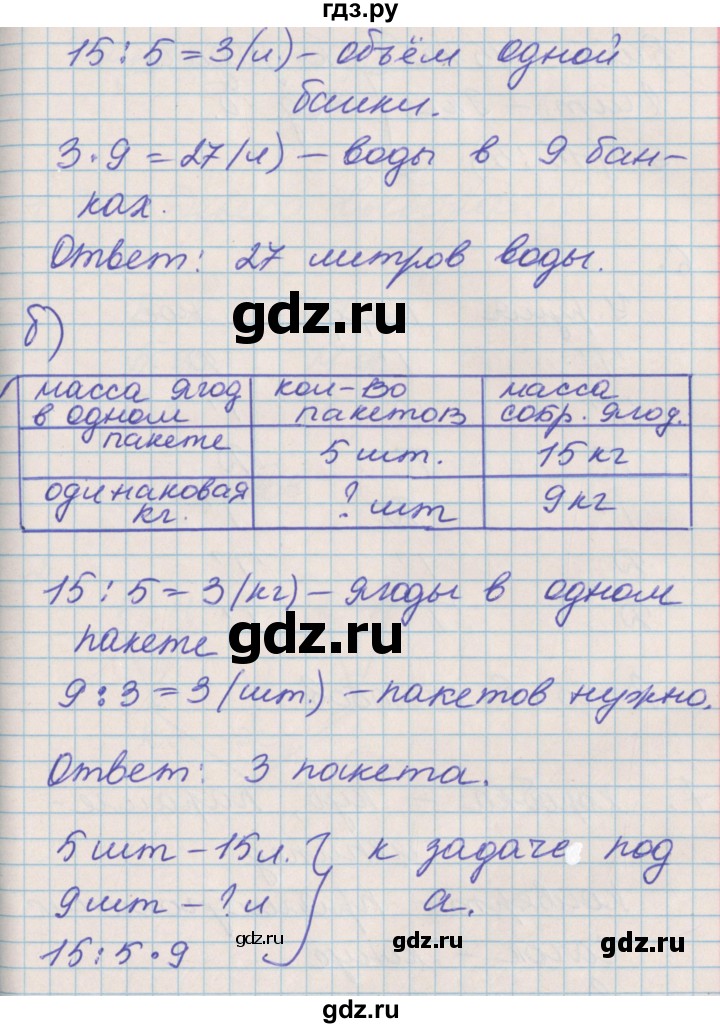 гдз.ру
15 : 5 = 3 (л) – объём одной
банки.
3 · 9 = 27 (л) – воды в 9 бан-
ках.
Ответ: 27 литров воды.
gdz.ru
б)
масса ягод в одном пакете | кол-во пакетов | масса собр. ягод.
одинаковая кг. | 5 шт. | 15 кг
? шт | 9 кг
15 : 5 = 3 (кг) – ягоды в одном
gdz.ru
пакете
9 : 3 = 3 (шт.) – пакетов нужно.
Ответ: 3 пакета.
5 шт – 15 л. } к задаче под
9 шт – ? л а.
15 : 5 · 9
gdz.ru
gdz.ru
gdz.ru
gdz.ru